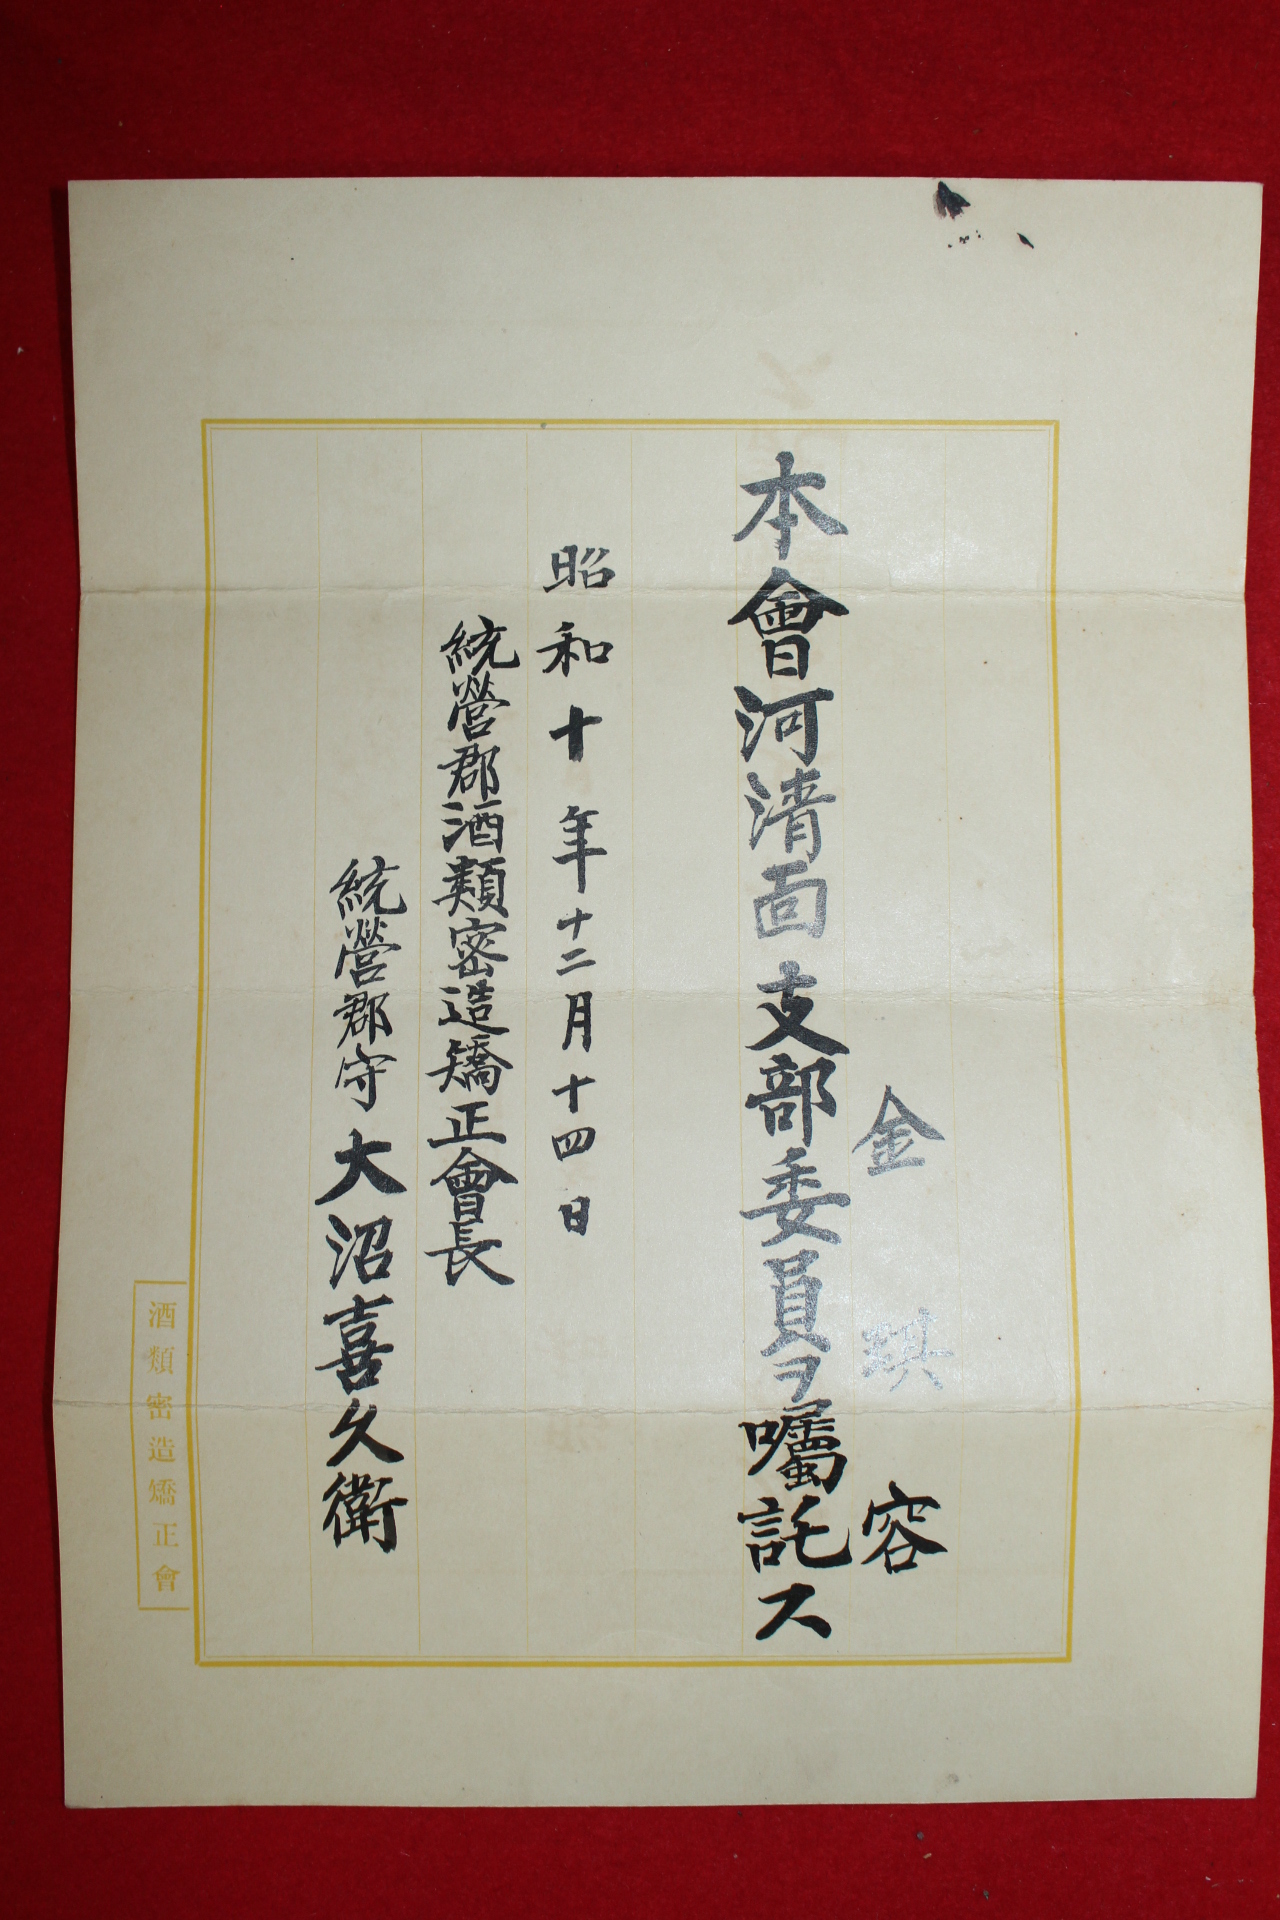 金琪容
本會河清面支部委員ヲ囑託ス
昭和十年十二月十四日
統營郡酒類密造矯正會長
統營郡守大沼喜久衛
酒類密造矯正會